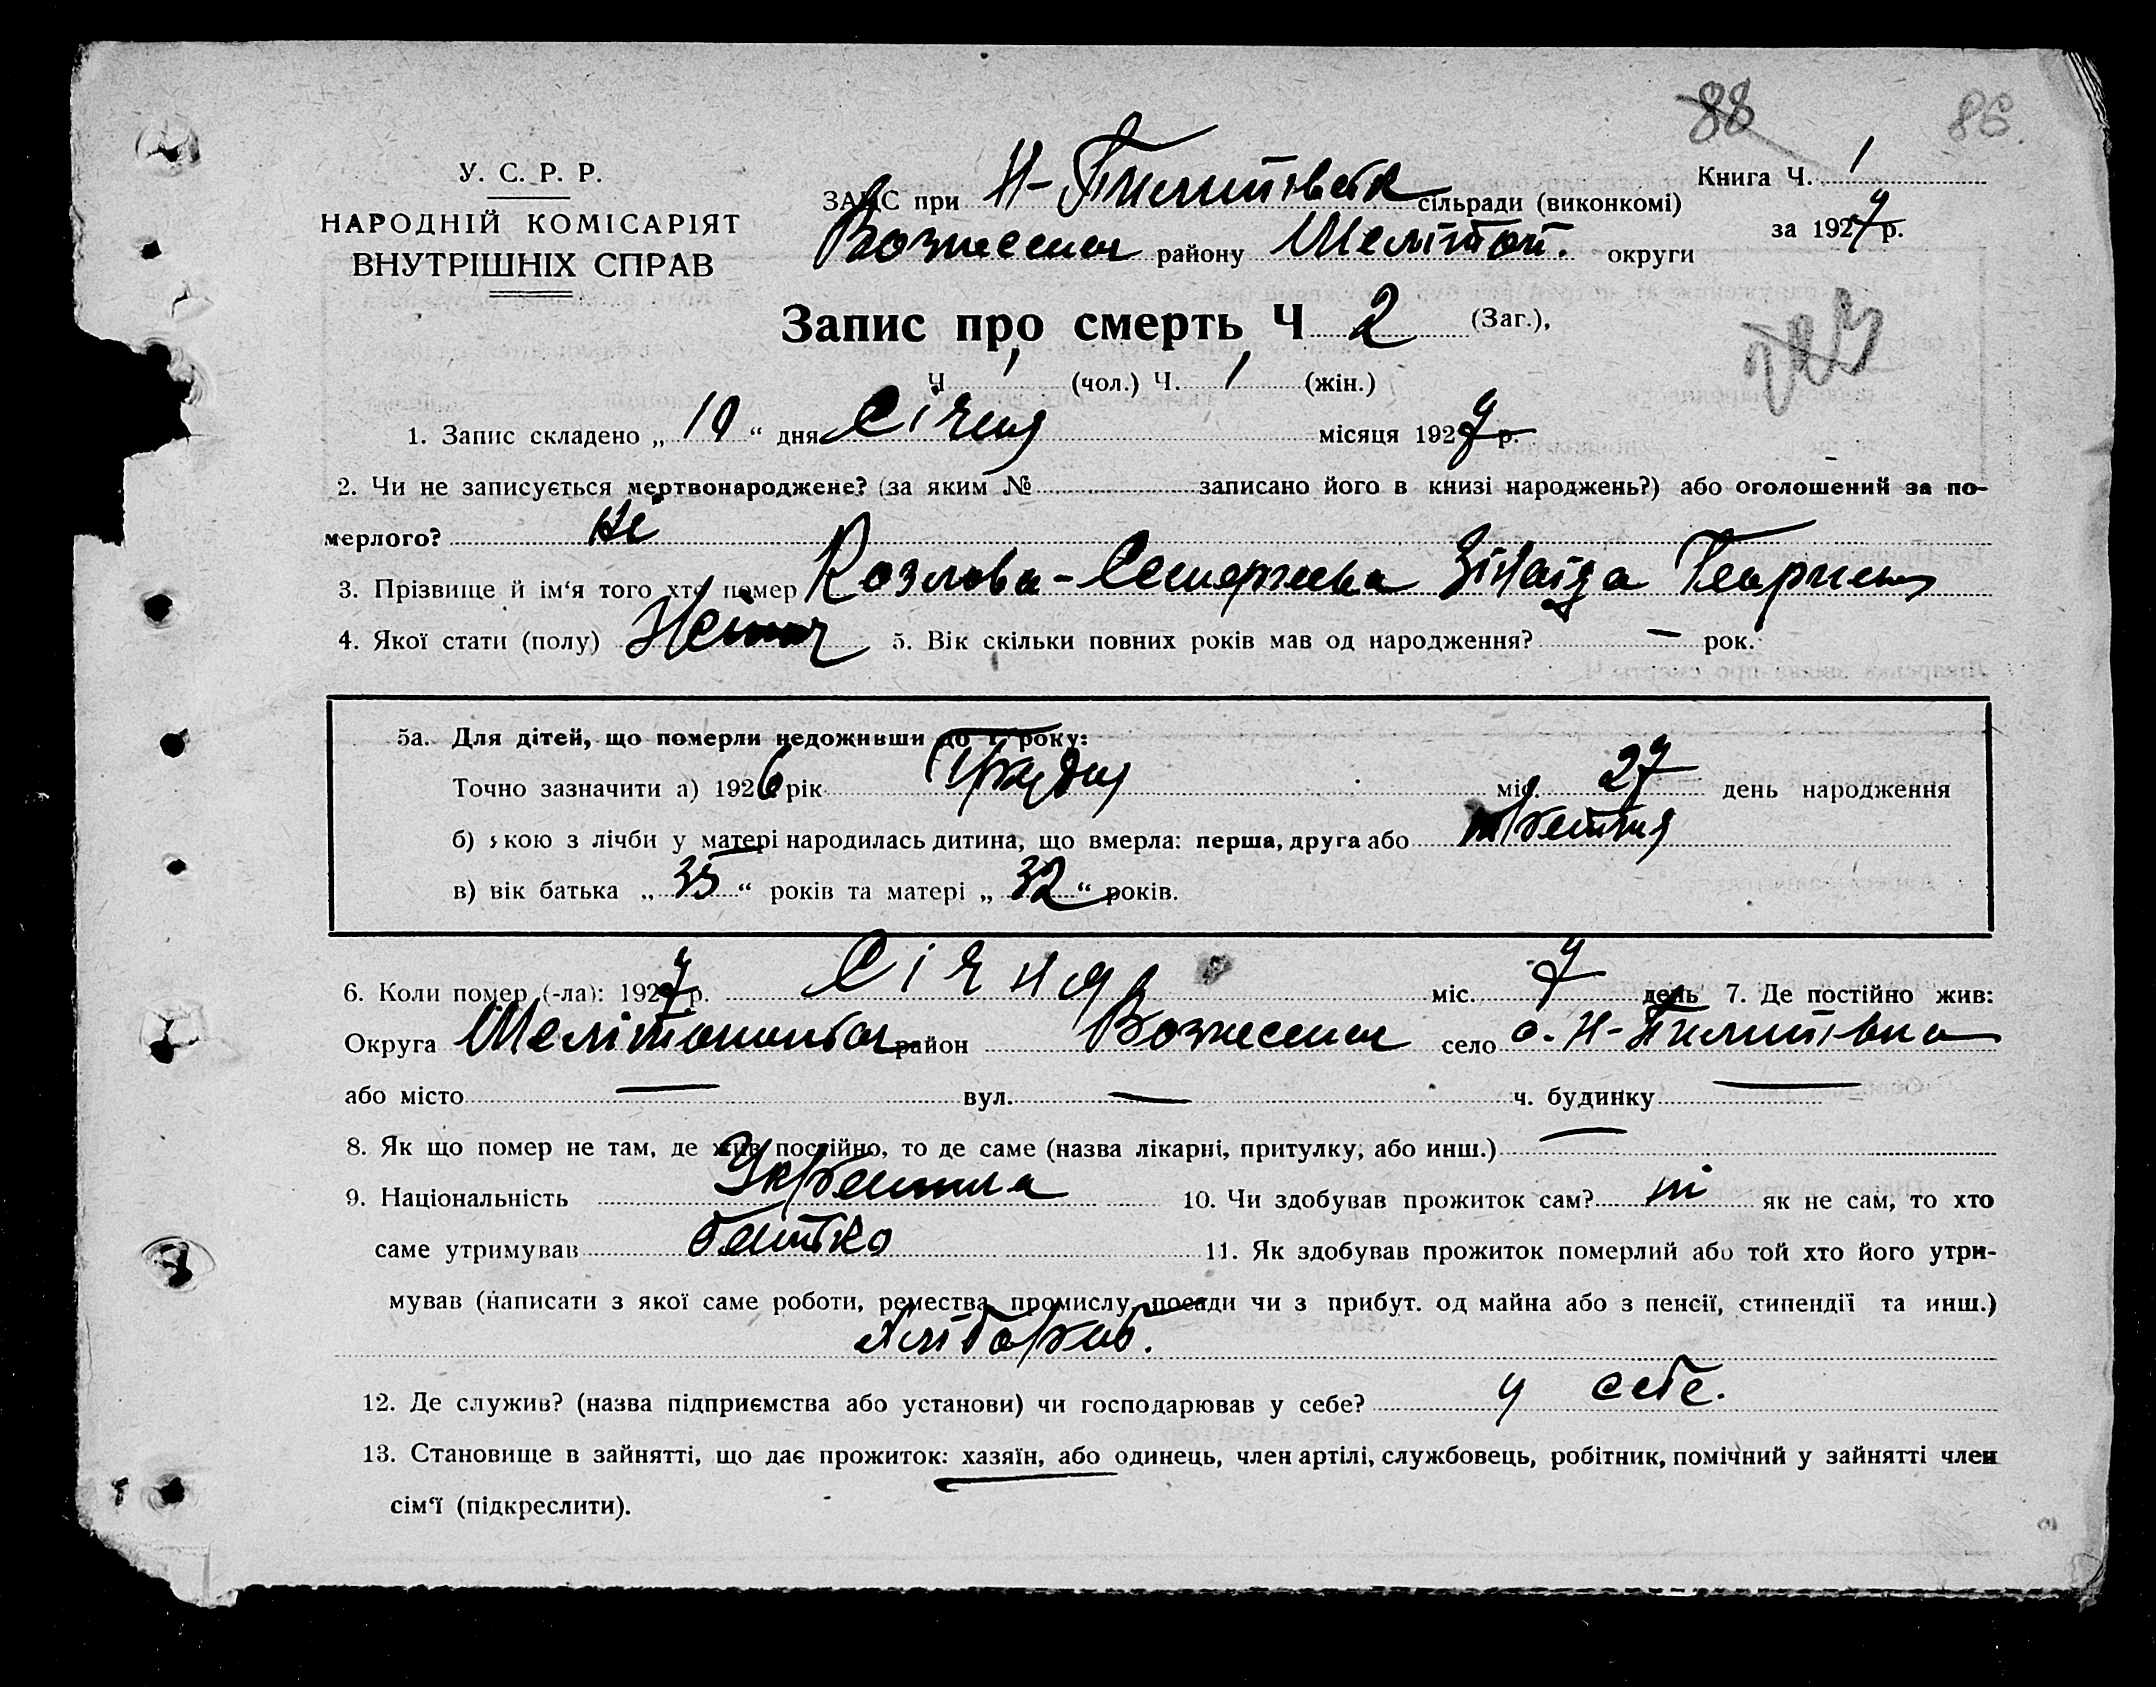 88 86
У. С. Р. Р.
НАРОДНІЙ КОМІСАРІЯТ
ВНУТРІШНІХ СПРАВ
ЗАГС при Н-Пилипівськ сільради (виконкомі)
Книга Ч. 1
Вознесенск району Меліитоп. округи
за 1927 р.
Запис про смерть Ч 2 (Заг.),
Ч 1 (чол.) Ч. 1 (жін.)
1. Запис складено „ 10 “ дня Січня місяця 1927 р.
2. Чи не записується мертвонароджене? (за яким № записано його в книзі народжень?) або оголошений за по-
мерлого? ні
3. Прізвище й ім‘я того хто помер Козлова - Зінаїда Георгиев
4. Якої стати (полу) Жіноч 5. Вік скільки повних років мав од народження? — рок.
5а. Для дітей, що померли недоживши до 1 року:
Точно зазначити а) 1926 рік Грудня міс. 27 день народження
б) якою з лічби у матері народилась дитина, що вмерла: перша, друга або третя
в) вік батька „ 35 “ років та матері „ 32 “ років.
6. Коли помер (-ла): 1927 р. Січня міс. 7 день 7. Де постійно жив:
Округа Мелітопольск район Вознесенск село с. Н-Пилипівка
або місто — вул. — ч. будинку —
8. Як що помер не там, де жив постійно, то де саме (назва лікарні, притулку, або инш.) —
9. Національність Українка 10. Чи здобував прожиток сам? ні як не сам, то хто
саме утримував батько 11. Як здобував прожиток померлий або той хто його утри-
мував (написати з якої саме роботи, ремества, промислу, посади чи з прибут. од майна або з пенсії, стипендії та инш.)
хлібороб.
12. Де служив? (назва підприємства або установи) чи господарював у себе? у себе.
13. Становище в зайнятті, що дає прожиток: хазяїн, або одинець, член артілі, службовець, робітник, помічний у зайнятті член
сім‘ї (підкреслити).